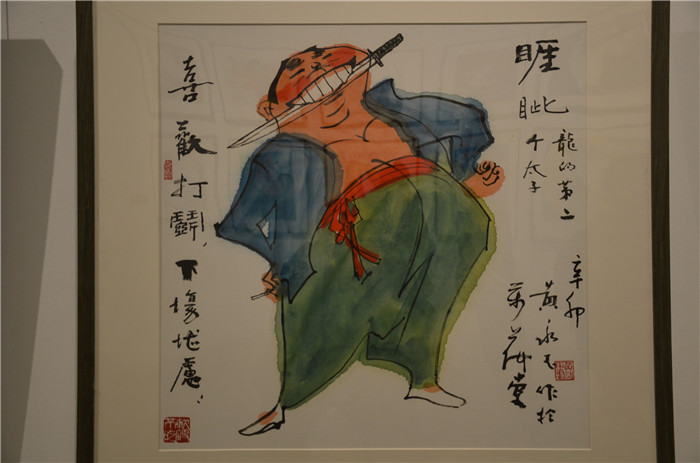 睚眦
龍的第二
个太子
辛卯
黄永玉作於
萬荷堂
喜歡打鬪、下場堪慮、